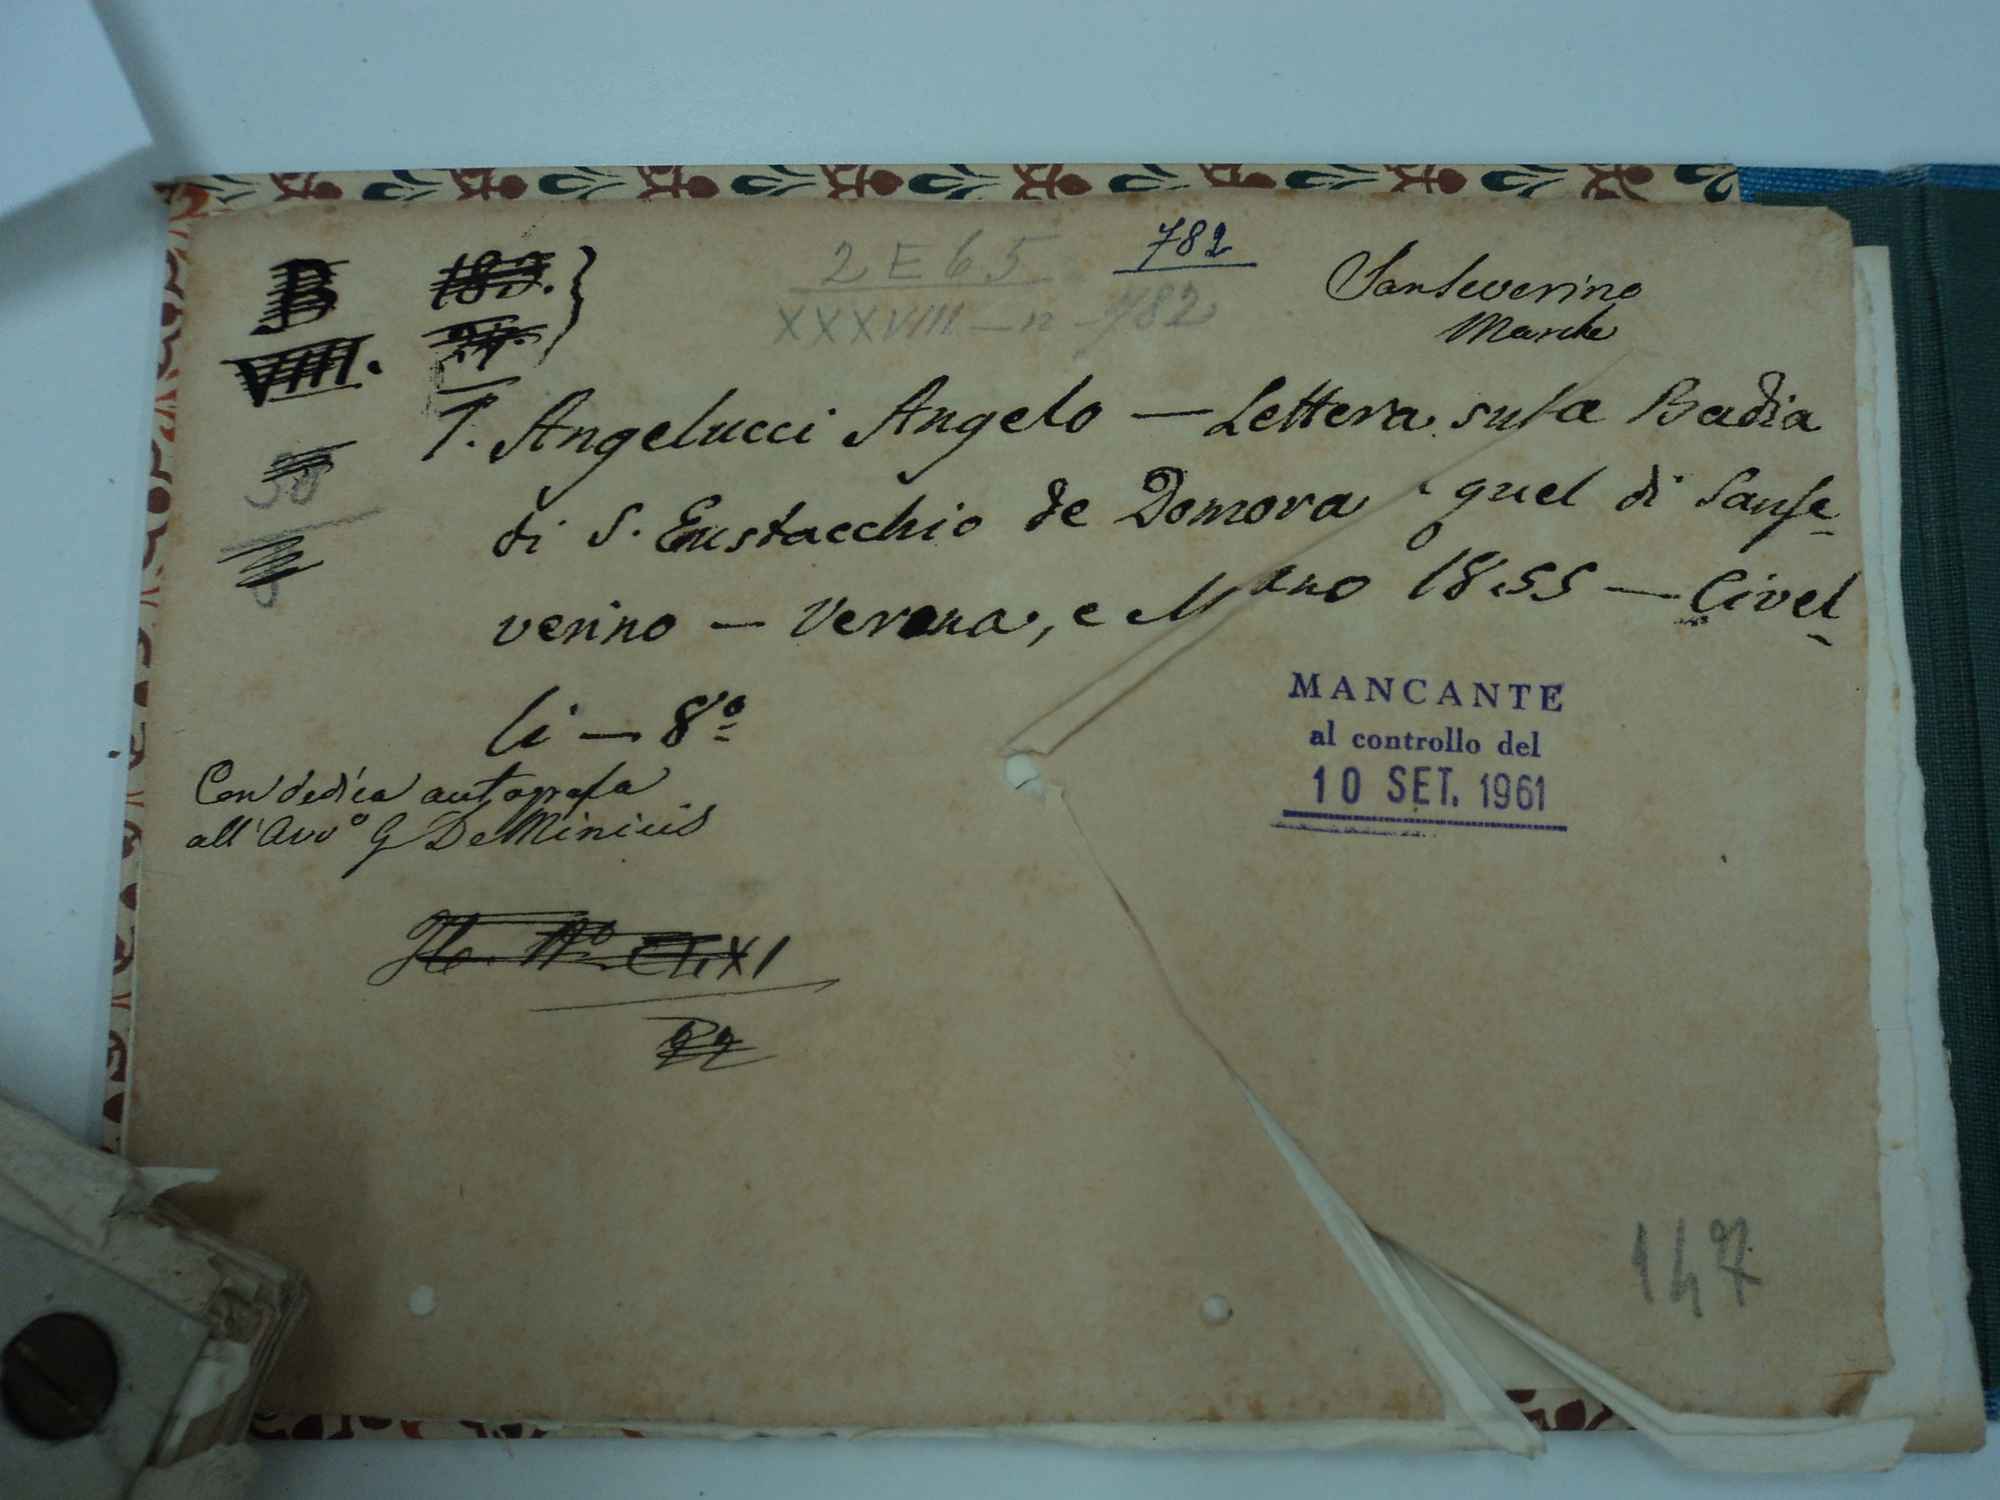 B 182.
VIII.
2 E 65
782
XXXVIII — n 782
Sanseverino
Marche
T. Angelucci Angelo — Lettera sulla Badia
di S. Eustacchio de Domora quel di Sanse-
verino — Verona, e M ano 1855 — Civel-
li — 8º
Con dedica autografa
all'Avvº G DeMinicis
MANCANTE
al controllo del
10 SET. 1961
147